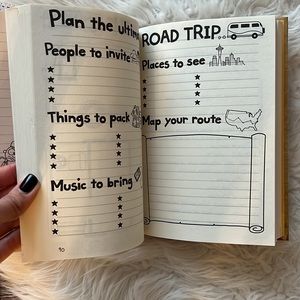 Plan the ultim
People to invite
Things to pack
Music to bring
90
ROAD TRIP
Places to see
Map your route